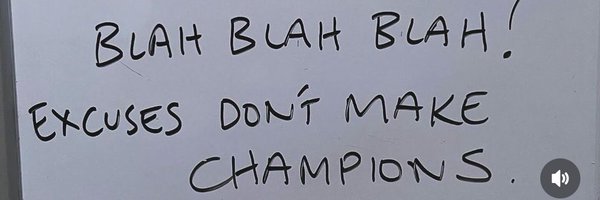 BLAH BLAH BLAH!
EXCUSES DON'T MAKE
CHAMPIONS.